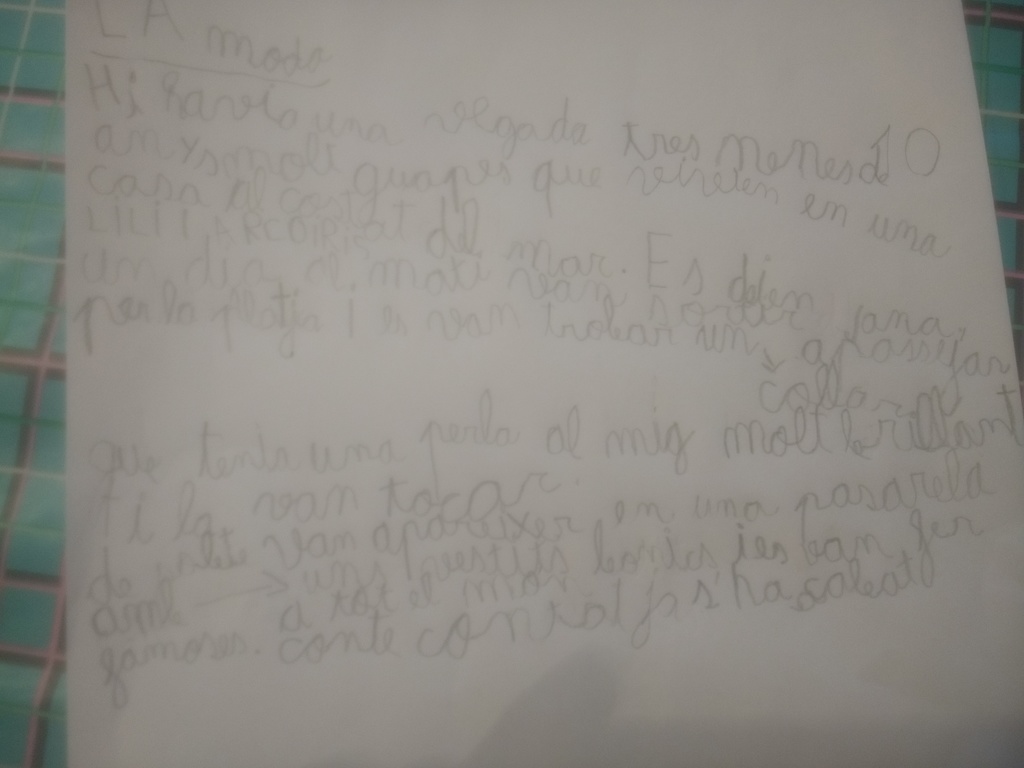 LA moda
Hi havia una vegada tres nenes de 10
anys molt guapes que vivien em una
casa al costat del mar. Es deien jana,
LILI I ARCOIRIS
un dia al mati van sortir a passejar
per la platja i es van trobar un →
collar
que tenia una perla al mig molt brillant
i la van tocar.
de van apareixer en una pasarela
amb → uns vestits bonics i es ban fer
famoses. a tot el mon
conte contat ja s'ha acabat